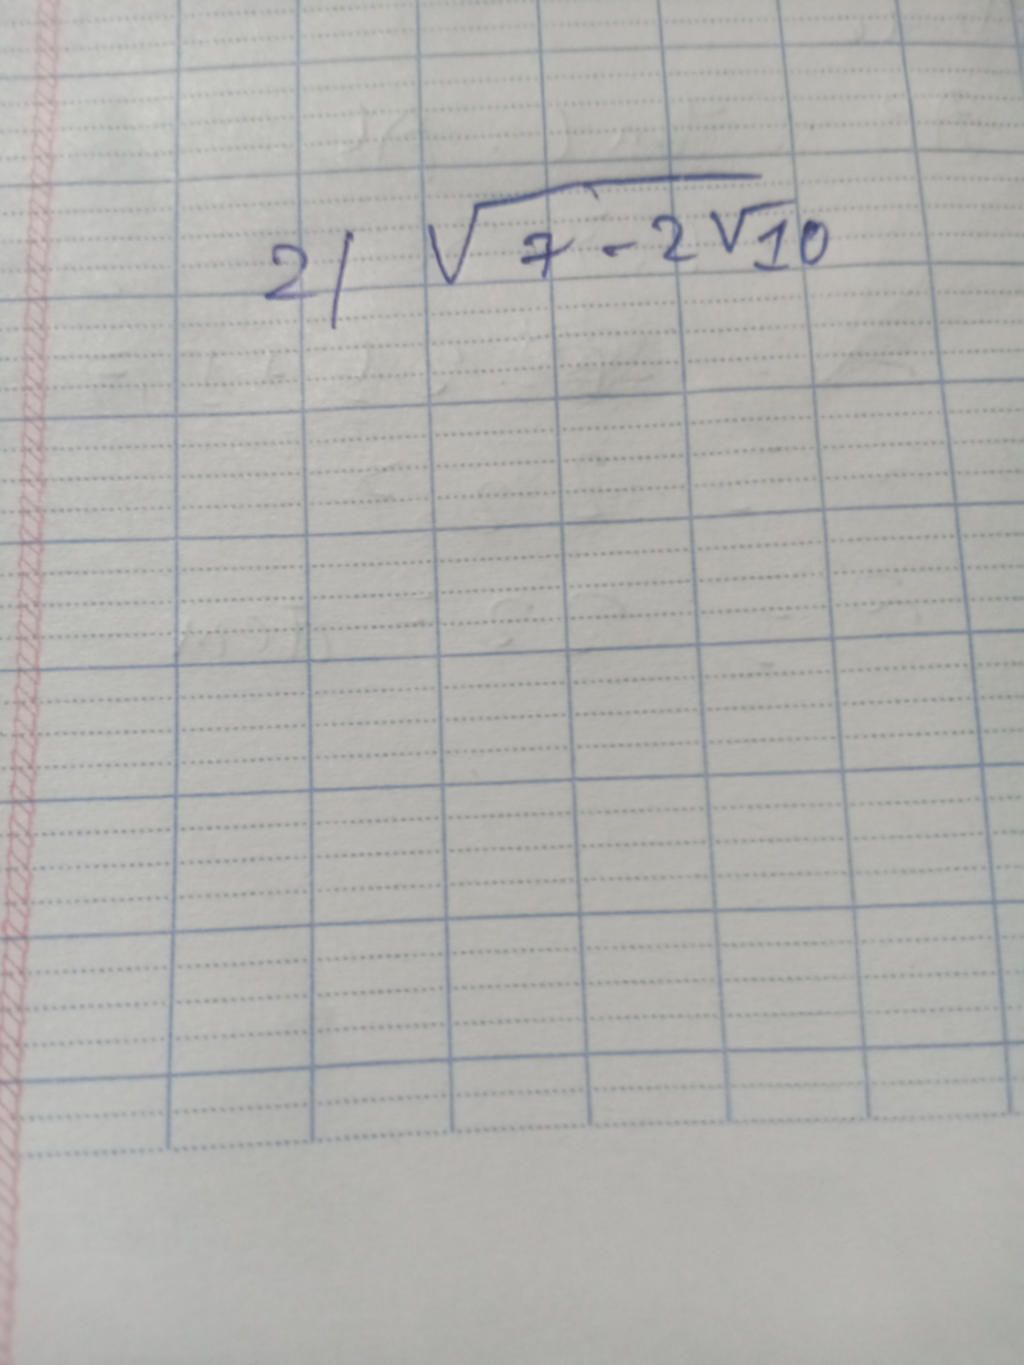 2/ √7 - 2√10